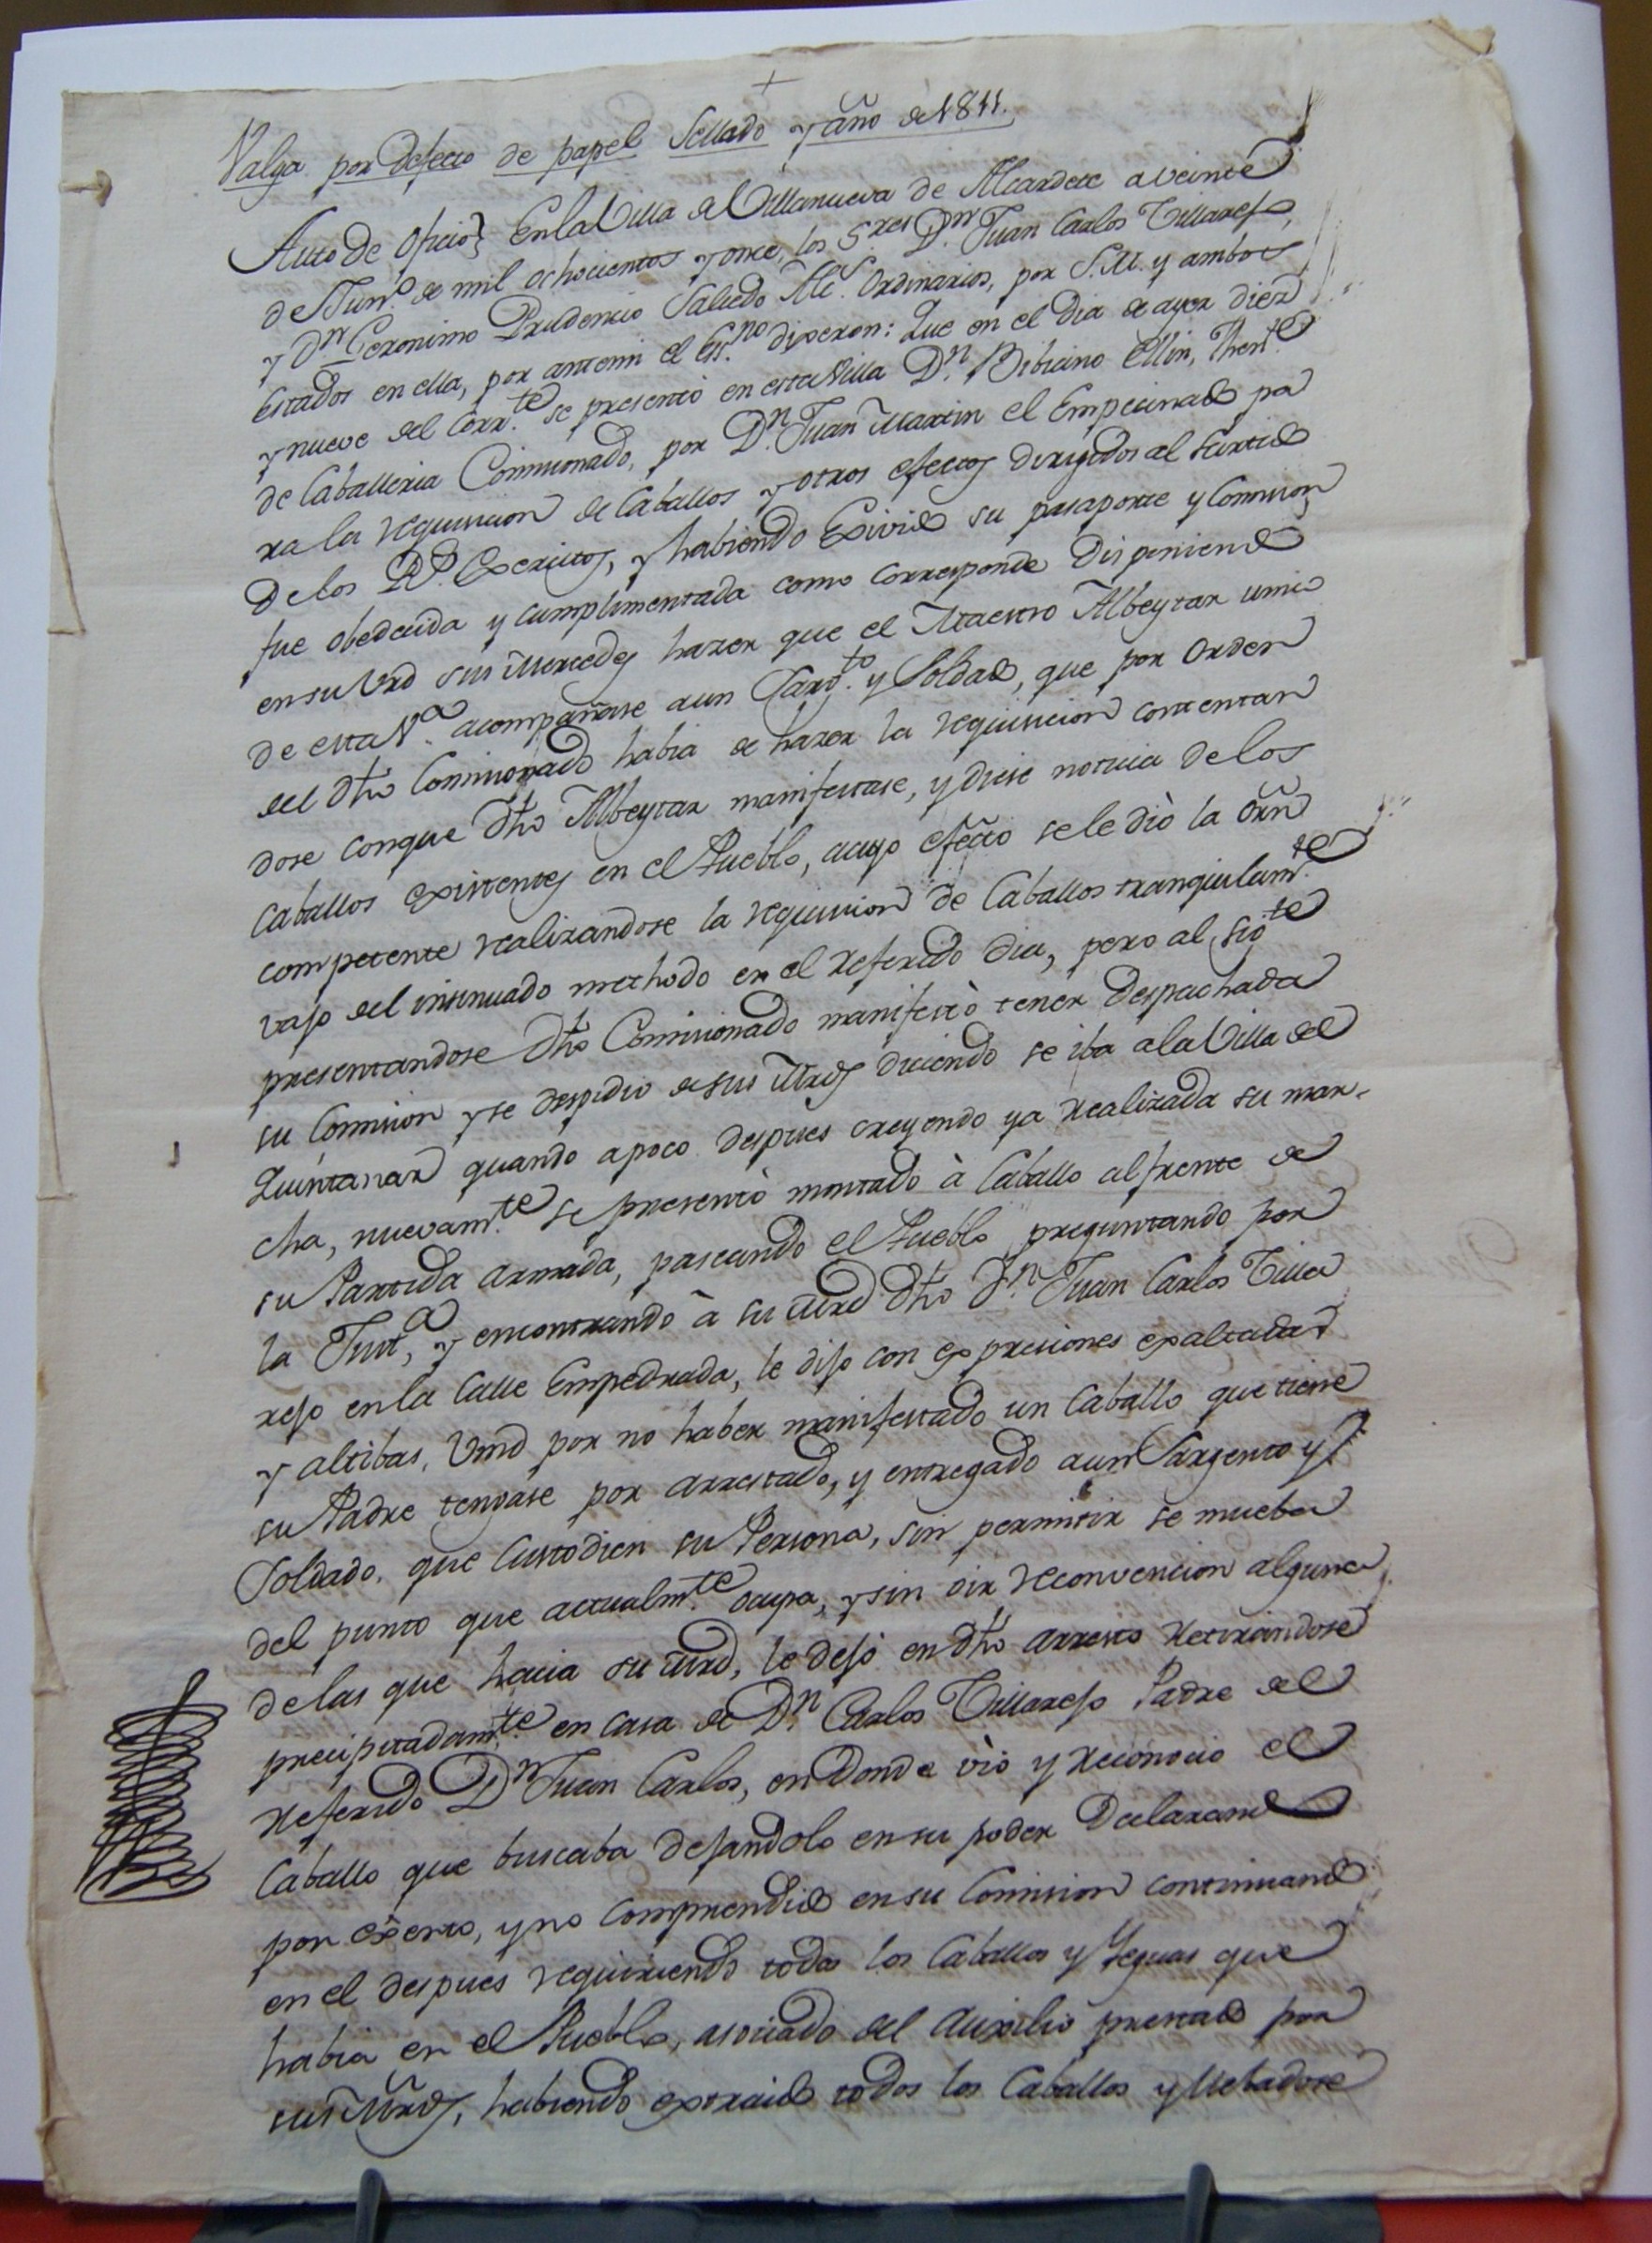 +
Valga por defecto de papel Sellado y año de 1811.
Auto de Oficio} En la Villa de Villanueva de Alcardete a veinte
de Jun.º de mil ochocientos y once, los S.res D.n Juan Carlos Villarejo,
y D.n Geronimo Prudencio Salcedo Alc.s Ordinarios, por S.M. y ambos
Estados en ella, por antemi el Es.no dixeron: Que en el dia de ayer diez
y nueve del Corr.te se presentó en esta Villa D.n Bibiano Ellin, Then.te
de Caballeria Comisionado, por D.n Juan Martin el Empecinado pa
ra la requisicion de Caballos y otros efectos dirigidos al surtido
de los R.s Exercitos, y habiendo Exivido su pasaporte y Comision
fue obedecida y cumplimentada como corresponde disponiendo
en su Vrd sus Mercedes hazer que el Maestro Albeytar unico
de esta V.a acompañase a un Sarg.to y Soldado, que por Orden
del dho Comisionado habia de hazer la requisicion contentan
dose conque dho Albeytar manifestase, y diese noticia de los
Caballos existentes en el Pueblo, a cuyo efecto se le dió la Orn
competente realizandose la requisicion de Caballos tranquilam.te
vajo del insinuado methodo en el referido dia, pero al sig.te
presentandose dho Comisionado manifestó tener despachada
su Comision y se despidio de sus Mrds diciendo se iba a la Villa del
Quintanar quando a poco despues creyendo ya realizada su mar-
cha, nuevam.te se presentó montado à Caballo al frente de
su Partida armada, paseando el Pueblo preguntando por
la Just.a, y encontrando à su Mrd dho D.n Juan Carlos Villa
rejo en la Calle Empedrada, le dijo con expresiones exaltadas
y altibas, Vmd por no haber manifestado un Caballo que tiene
su Padre tengase por arrestado, y entregado a un Sargento y
Soldado, que Custodien su Persona, sin permitir se mueba
del punto que actualm.te ocupa, y sin oir reconvencion alguna
de las que hacia su Mrd, le dejó en dho arresto retirandose
precipitadam.te en casa de D.n Carlos Villarejo Padre del
referido D.n Juan Carlos, en donde vió y reconocio el
Caballo que buscaba dejandolo en su poder declarando
por exento, y no comprendido en su Comision continuando
en el despues requiriendo todos los Caballos y Yeguas que
habia en el Pueblo, asociado del Auxilio prestado por
sus Mrds, habiendo extraido todos los Caballos y llebadose